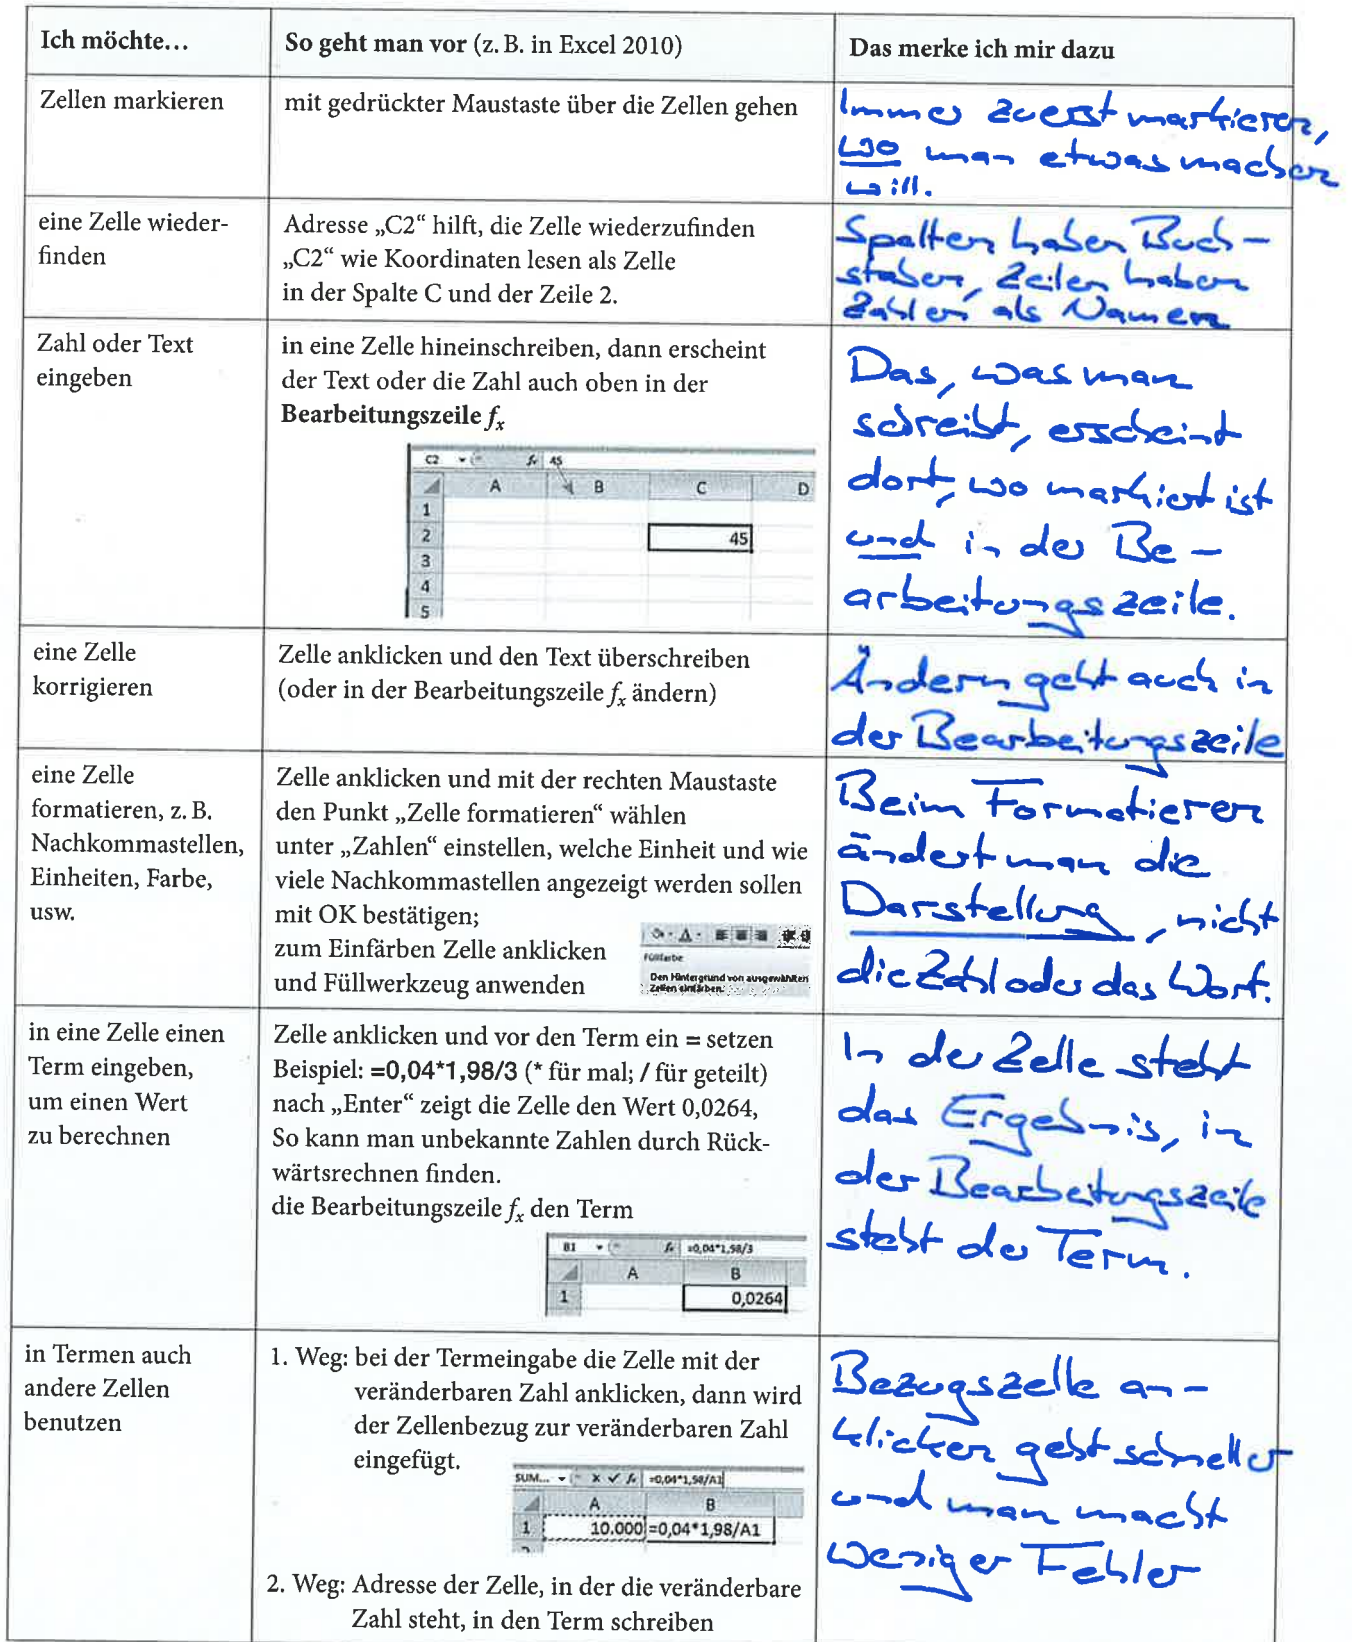 Ich möchte...
So geht man vor (z. B. in Excel 2010)
Das merke ich mir dazu
Zellen markieren
mit gedrückter Maustaste über die Zellen gehen
Immer zuerst markieren,
wo man etwas machen
will.
eine Zelle wieder-
finden
Adresse „C2“ hilft, die Zelle wiederzufinden
„C2“ wie Koordinaten lesen als Zelle
in der Spalte C und der Zeile 2.
Spalten haben Buch-
staben, Zeilen haben
Zahlen als Namen
Zahl oder Text
eingeben
in eine Zelle hineinschreiben, dann erscheint
der Text oder die Zahl auch oben in der
Bearbeitungszeile fx
C2 fx 45
A B C D
1
2 45
3
4
5
Das, was man
schreibt, erscheint
dort, wo markiert ist
und in der Be-
arbeitungszeile.
eine Zelle
korrigieren
Zelle anklicken und den Text überschreiben
(oder in der Bearbeitungszeile fx ändern)
Ändern geht auch in
der Bearbeitungszeile
eine Zelle
formatieren, z. B.
Nachkommastellen,
Einheiten, Farbe,
usw.
Zelle anklicken und mit der rechten Maustaste
den Punkt „Zelle formatieren“ wählen
unter „Zahlen“ einstellen, welche Einheit und wie
viele Nachkommastellen angezeigt werden sollen
mit OK bestätigen;
zum Einfärben Zelle anklicken
und Füllwerkzeug anwenden
A
Füllfarbe
Den Hintergrund von ausgewählten
Zellen einfärben.
Beim Formatieren
ändert man die
Darstellung, nicht
die Zahl oder das Wort.
in eine Zelle einen
Term eingeben,
um einen Wert
zu berechnen
Zelle anklicken und vor den Term ein = setzen
Beispiel: =0,04*1,98/3 (* für mal; / für geteilt)
nach „Enter“ zeigt die Zelle den Wert 0,0264,
So kann man unbekannte Zahlen durch Rück-
wärtsrechnen finden.
die Bearbeitungszeile fx den Term
B1 fx =0,04*1,98/3
A B
1 0,0264
In der Zelle steht
das Ergebnis, in
der Bearbeitungszeile
steht der Term.
in Termen auch
andere Zellen
benutzen
1. Weg: bei der Termeingabe die Zelle mit der
veränderbaren Zahl anklicken, dann wird
der Zellenbezug zur veränderbaren Zahl
eingefügt.
SUM... fx =0,04*1,98/A1
A B
1 10.000 =0,04*1,98/A1
2. Weg: Adresse der Zelle, in der die veränderbare
Zahl steht, in den Term schreiben
Bezugszelle an-
klicken geht schneller
und man macht
weniger Fehler